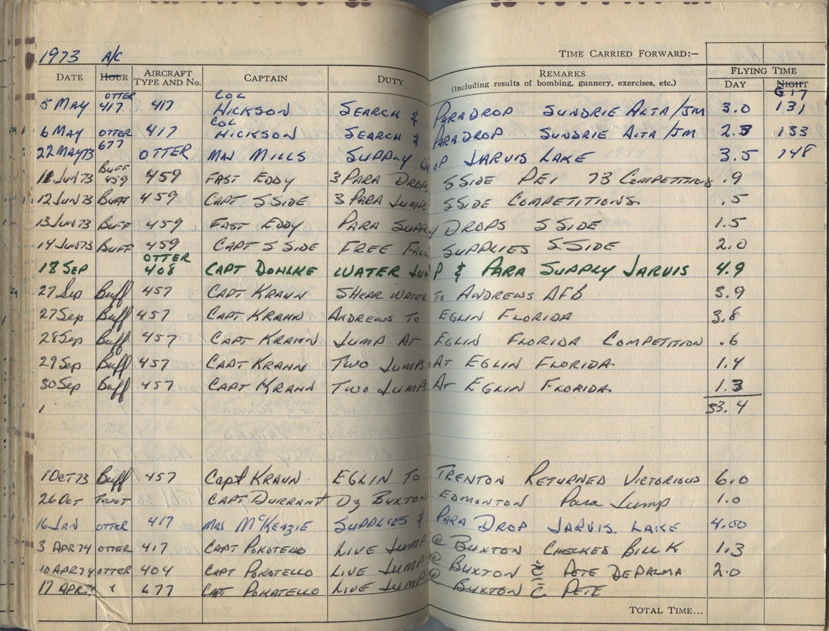 1973 A/C TIME CARRIED FORWARD:–
DATE HOUR AIRCRAFT TYPE AND No. CAPTAIN DUTY REMARKS (Including results of bombing, gunnery, exercises, etc.) FLYING TIME DAY NIGHT
5 MAY OTTER 417 417 COL HICKSON SEARCH & PARADROP SUNDRIE ALTA/JM 3.0 131
6 MAY OTTER 417 COL HICKSON SEARCH & PARADROP SUNDRIE ALTA/JM 2.3 133
22 MAY 73 677 OTTER MAJ MILLS SUPPLY DROP JARVIS LAKE 3.5 148
11 JUN 73 BUFF 459 459 FAST EDDY 3 PARA DROPS SSIDE PEI 73 COMPETITION .9
12 JUN 73 BUFF 459 CAPT SSIDE 3 PARA JUMPS SSIDE COMPETITIONS .5
13 JUN 73 BUFF 459 FAST EDDY PARA SUPPLY DROPS SSIDE 1.5
14 JUN 73 BUFF 459 CAPT SSIDE FREE FALL SUPPLIES SSIDE 2.0
18 SEP OTTER 408 CAPT DOHLKE WATER JUMP & PARA SUPPLY JARVIS 4.9
27 Sep Buff 457 CAPT KRAHN SHEARWATER TO ANDREWS AFB 3.9
27 Sep Buff 457 CAPT KRAHN ANDREWS TO EGLIN FLORIDA 3.8
28 Sep Buff 457 CAPT KRAHN JUMP AT EGLIN FLORIDA COMPETITION .6
29 Sep Buff 457 CAPT KRAHN TWO JUMPS AT EGLIN FLORIDA 1.4
30 Sep Buff 457 CAPT KRAHN TWO JUMPS AT EGLIN FLORIDA 1.3
33.4
1 OCT 73 Buff 457 Capt KRAHN EGLIN TO TRENTON RETURNED VICTORIOUS 6.0
26 OCT CAPT DURRANT DZ BUXTON EDMONTON Para Jump 1.0
16 JAN OTTER 417 MAJ McKENZIE SUPPLIES & PARA DROP JARVIS LAKE 4.00
3 APR 74 OTTER 417 CAPT POKOTELLO LIVE JUMP @ BUXTON CHECKED BILL K 1.3
10 APR 74 OTTER 404 CAPT POKATELLO LIVE JUMP @ BUXTON C̄ PETE DEPALMA 2.0
17 APR 74 " 677 CAPT POKATELLO LIVE JUMP @ BUXTON C̄ PETE
TOTAL TIME...